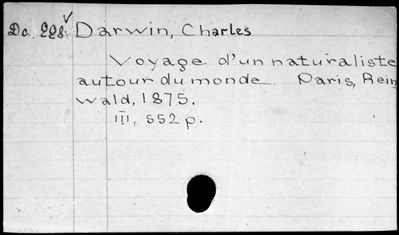 Do. 228. Darwin, Charles
Voyage d'un naturaliste
autour du monde. Paris, Rein
wald, 1875.
III, 552 p.